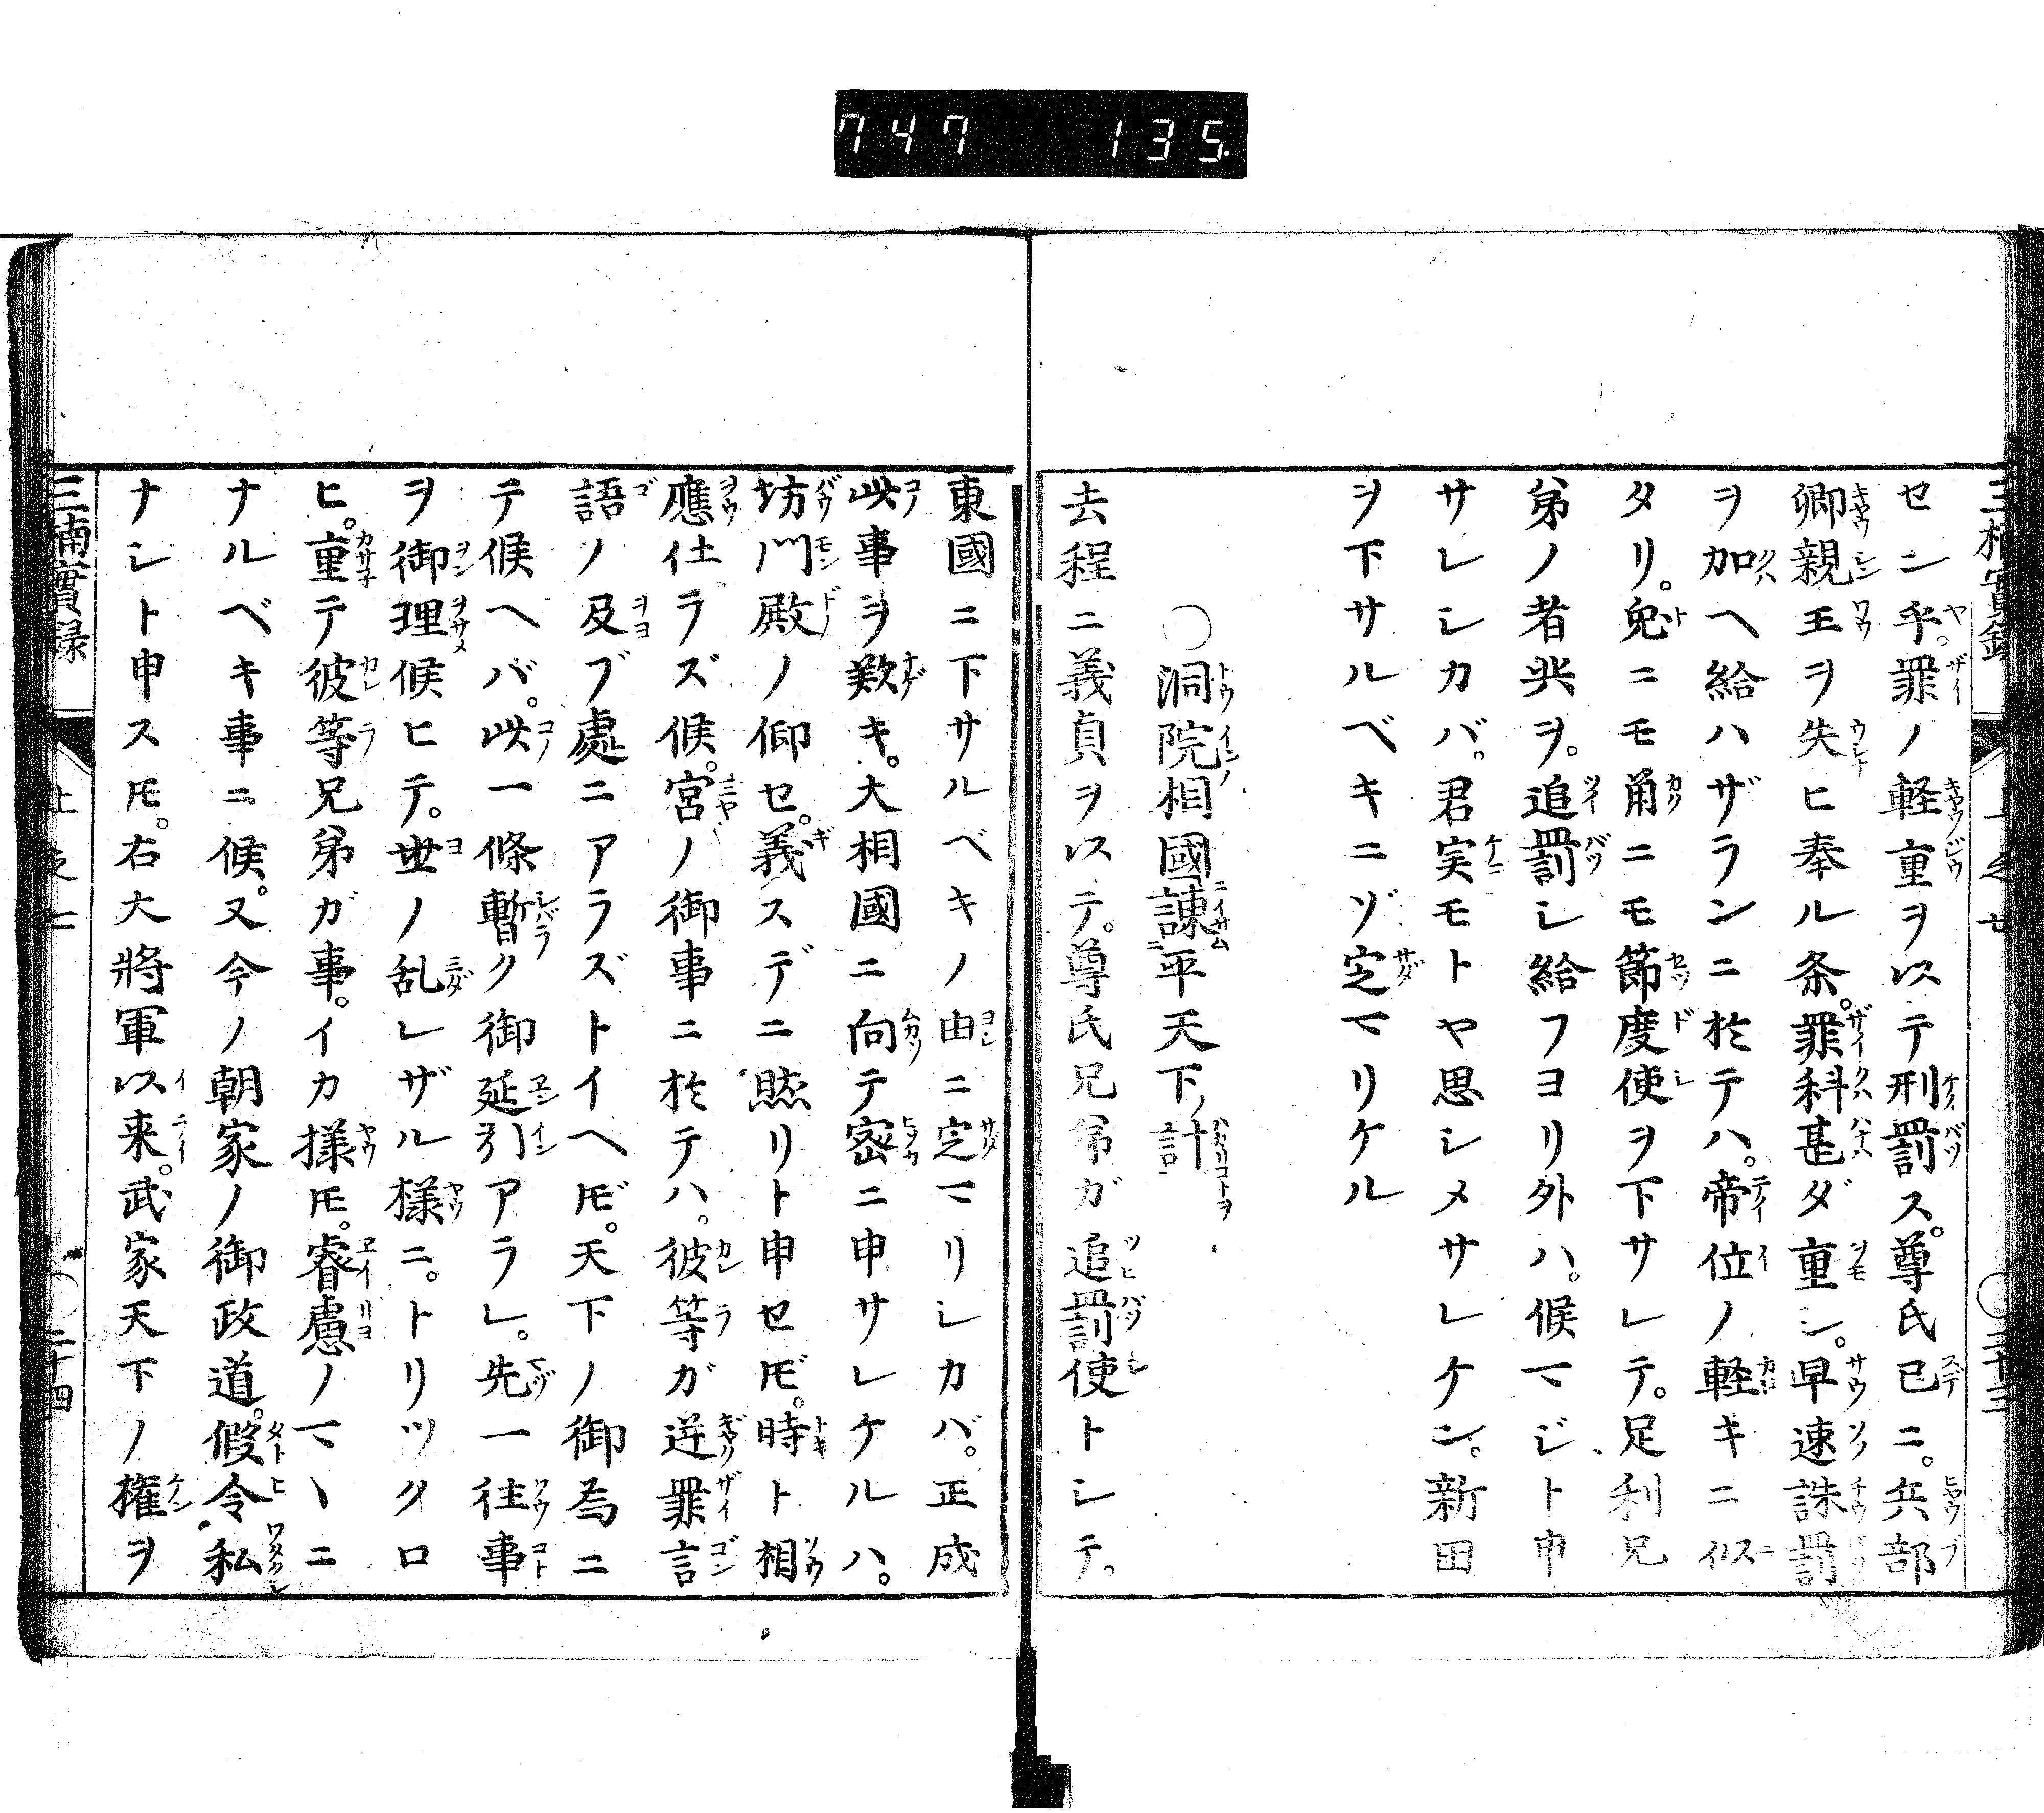 747 135
三楠實録 上之七 ○二十三
センヤ乎。罪ノ軽重ヲ以テ刑罰ス。尊氏已ニ。兵部
卿親王ヲ失ヒ奉ル条。罪科甚ダ重シ。早速誅罰
ヲ加ヘ給ハザランニ於テハ。帝位ノ軽キニ似
タリ。兔ニモ角ニモ節度使ヲ下サレテ。足利兄
弟ノ者共ヲ。追罰シ給フヨリ外ハ。候マジト申
サレシカバ。君実モトヤ思シメサレケン。新田
ヲ下サルベキニゾ定マリケル
○洞院相國諫平天下ノ計
去程ニ義貞ヲ以テ。尊氏兄弟ガ追罰使トシテ。
東國ニ下サルベキノ由ニ定マリシカバ。正成
此事ヲ歎キ。大相國ニ向テ密ニ申サレケルハ。
坊門殿ノ仰セ。義スデニ黙リト申セ𪜈。時ト相
應仕ラズ候。宮ノ御事ニ於テハ。彼等ガ逆罪言
語ノ及ブ處ニアラズトイヘ𪜈。天下ノ御為ニ
テ候ヘバ。此一條暫ク御延引アラレ。先一往事
ヲ御理候ヒテ。世ノ乱レザル様ニ。トリツクロ
ヒ。重テ彼等兄弟ガ事。イカ様𪜈。睿慮ノマヽニ
ナルベキ事ニ候。又今ノ朝家ノ御政道。假令私
ナシト申ス𪜈。右大將軍以来。武家天下ノ権ヲ
三楠實録 上之七 ○二十四